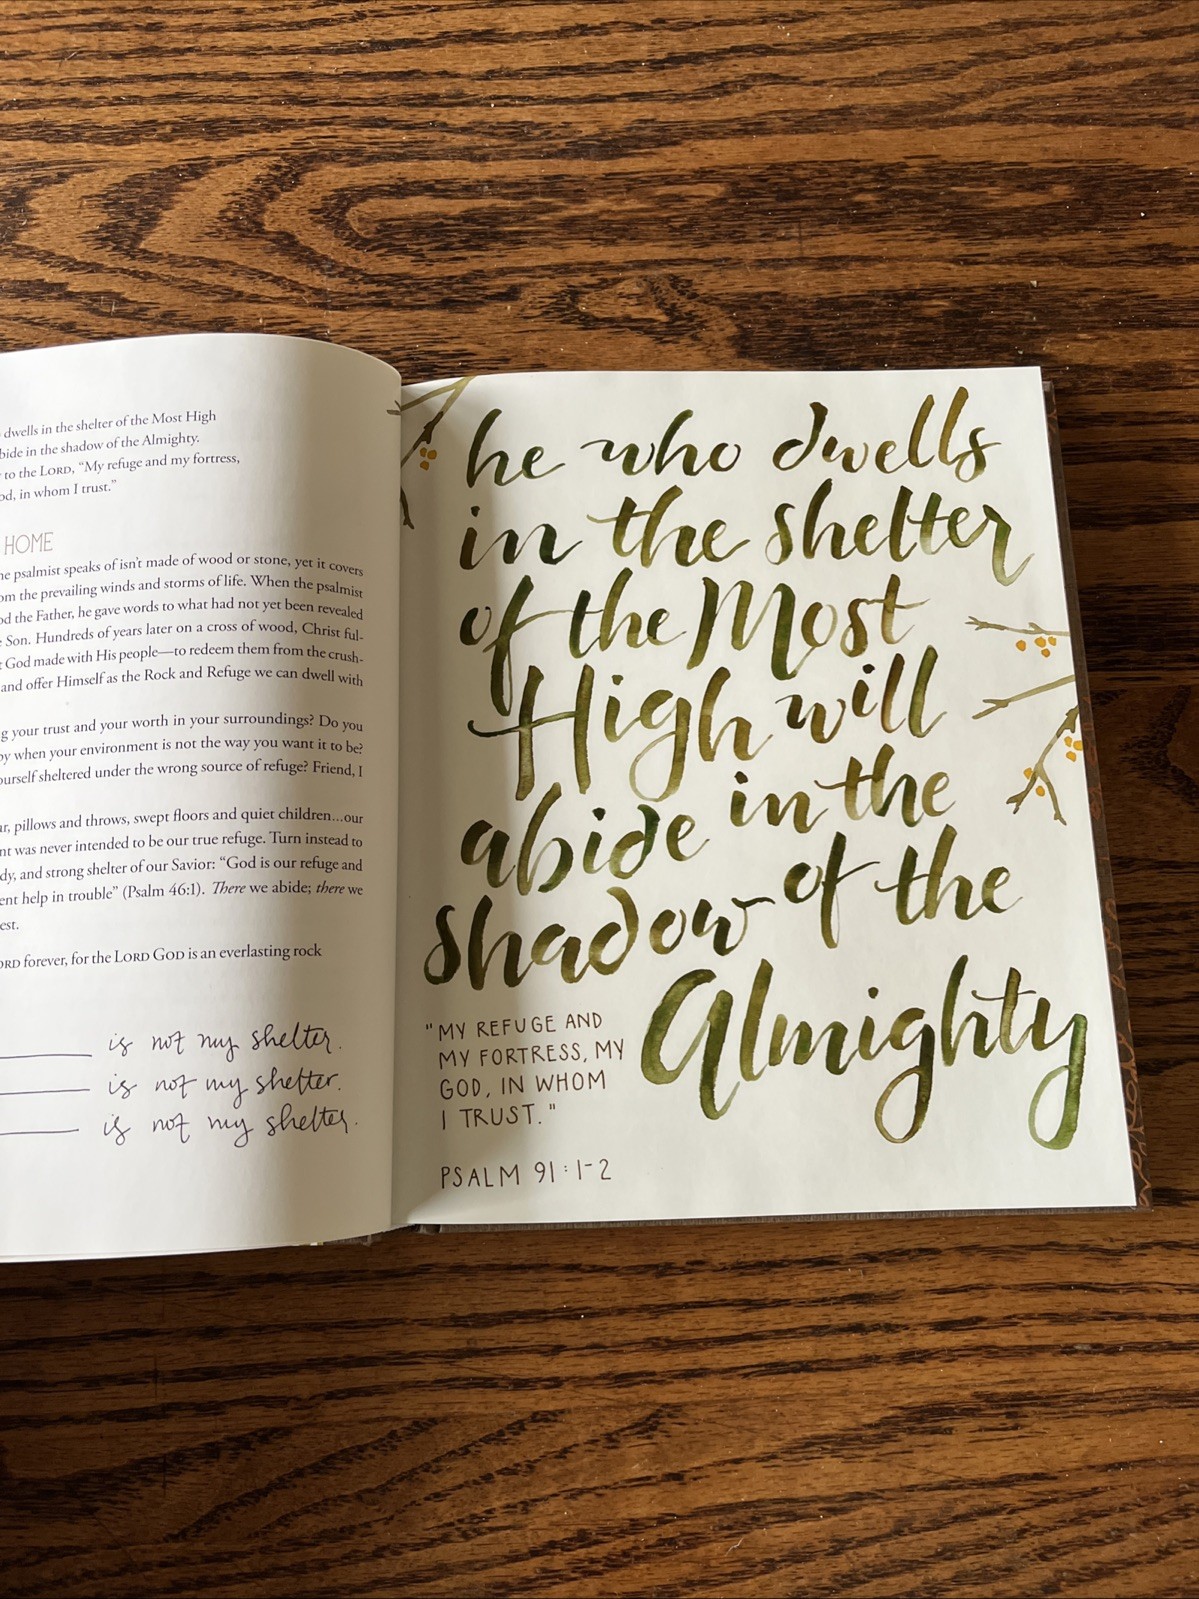 dwells in the shelter of the Most High
bide in the shadow of the Almighty.
to the LORD, “My refuge and my fortress,
od, in whom I trust.”
HOME
he psalmist speaks of isn’t made of wood or stone, yet it covers
om the prevailing winds and storms of life. When the psalmist
od the Father, he gave words to what had not yet been revealed
e Son. Hundreds of years later on a cross of wood, Christ ful-
t God made with His people—to redeem them from the crush-
and offer Himself as the Rock and Refuge we can dwell with
g your trust and your worth in your surroundings? Do you
oy when your environment is not the way you want it to be?
ourself sheltered under the wrong source of refuge? Friend, I
ar, pillows and throws, swept floors and quiet children...our
nt was never intended to be our true refuge. Turn instead to
dy, and strong shelter of our Savior: “God is our refuge and
ent help in trouble” (Psalm 46:1). There we abide; there we
est.
ORD forever, for the LORD GOD is an everlasting rock
is not my shelter.
is not my shelter.
is not my shelter.
he who dwells
in the shelter
of the Most
High will
abide in the
shadow of the
Almighty
"MY REFUGE AND
MY FORTRESS, MY
GOD, IN WHOM
I TRUST."
PSALM 91:1-2